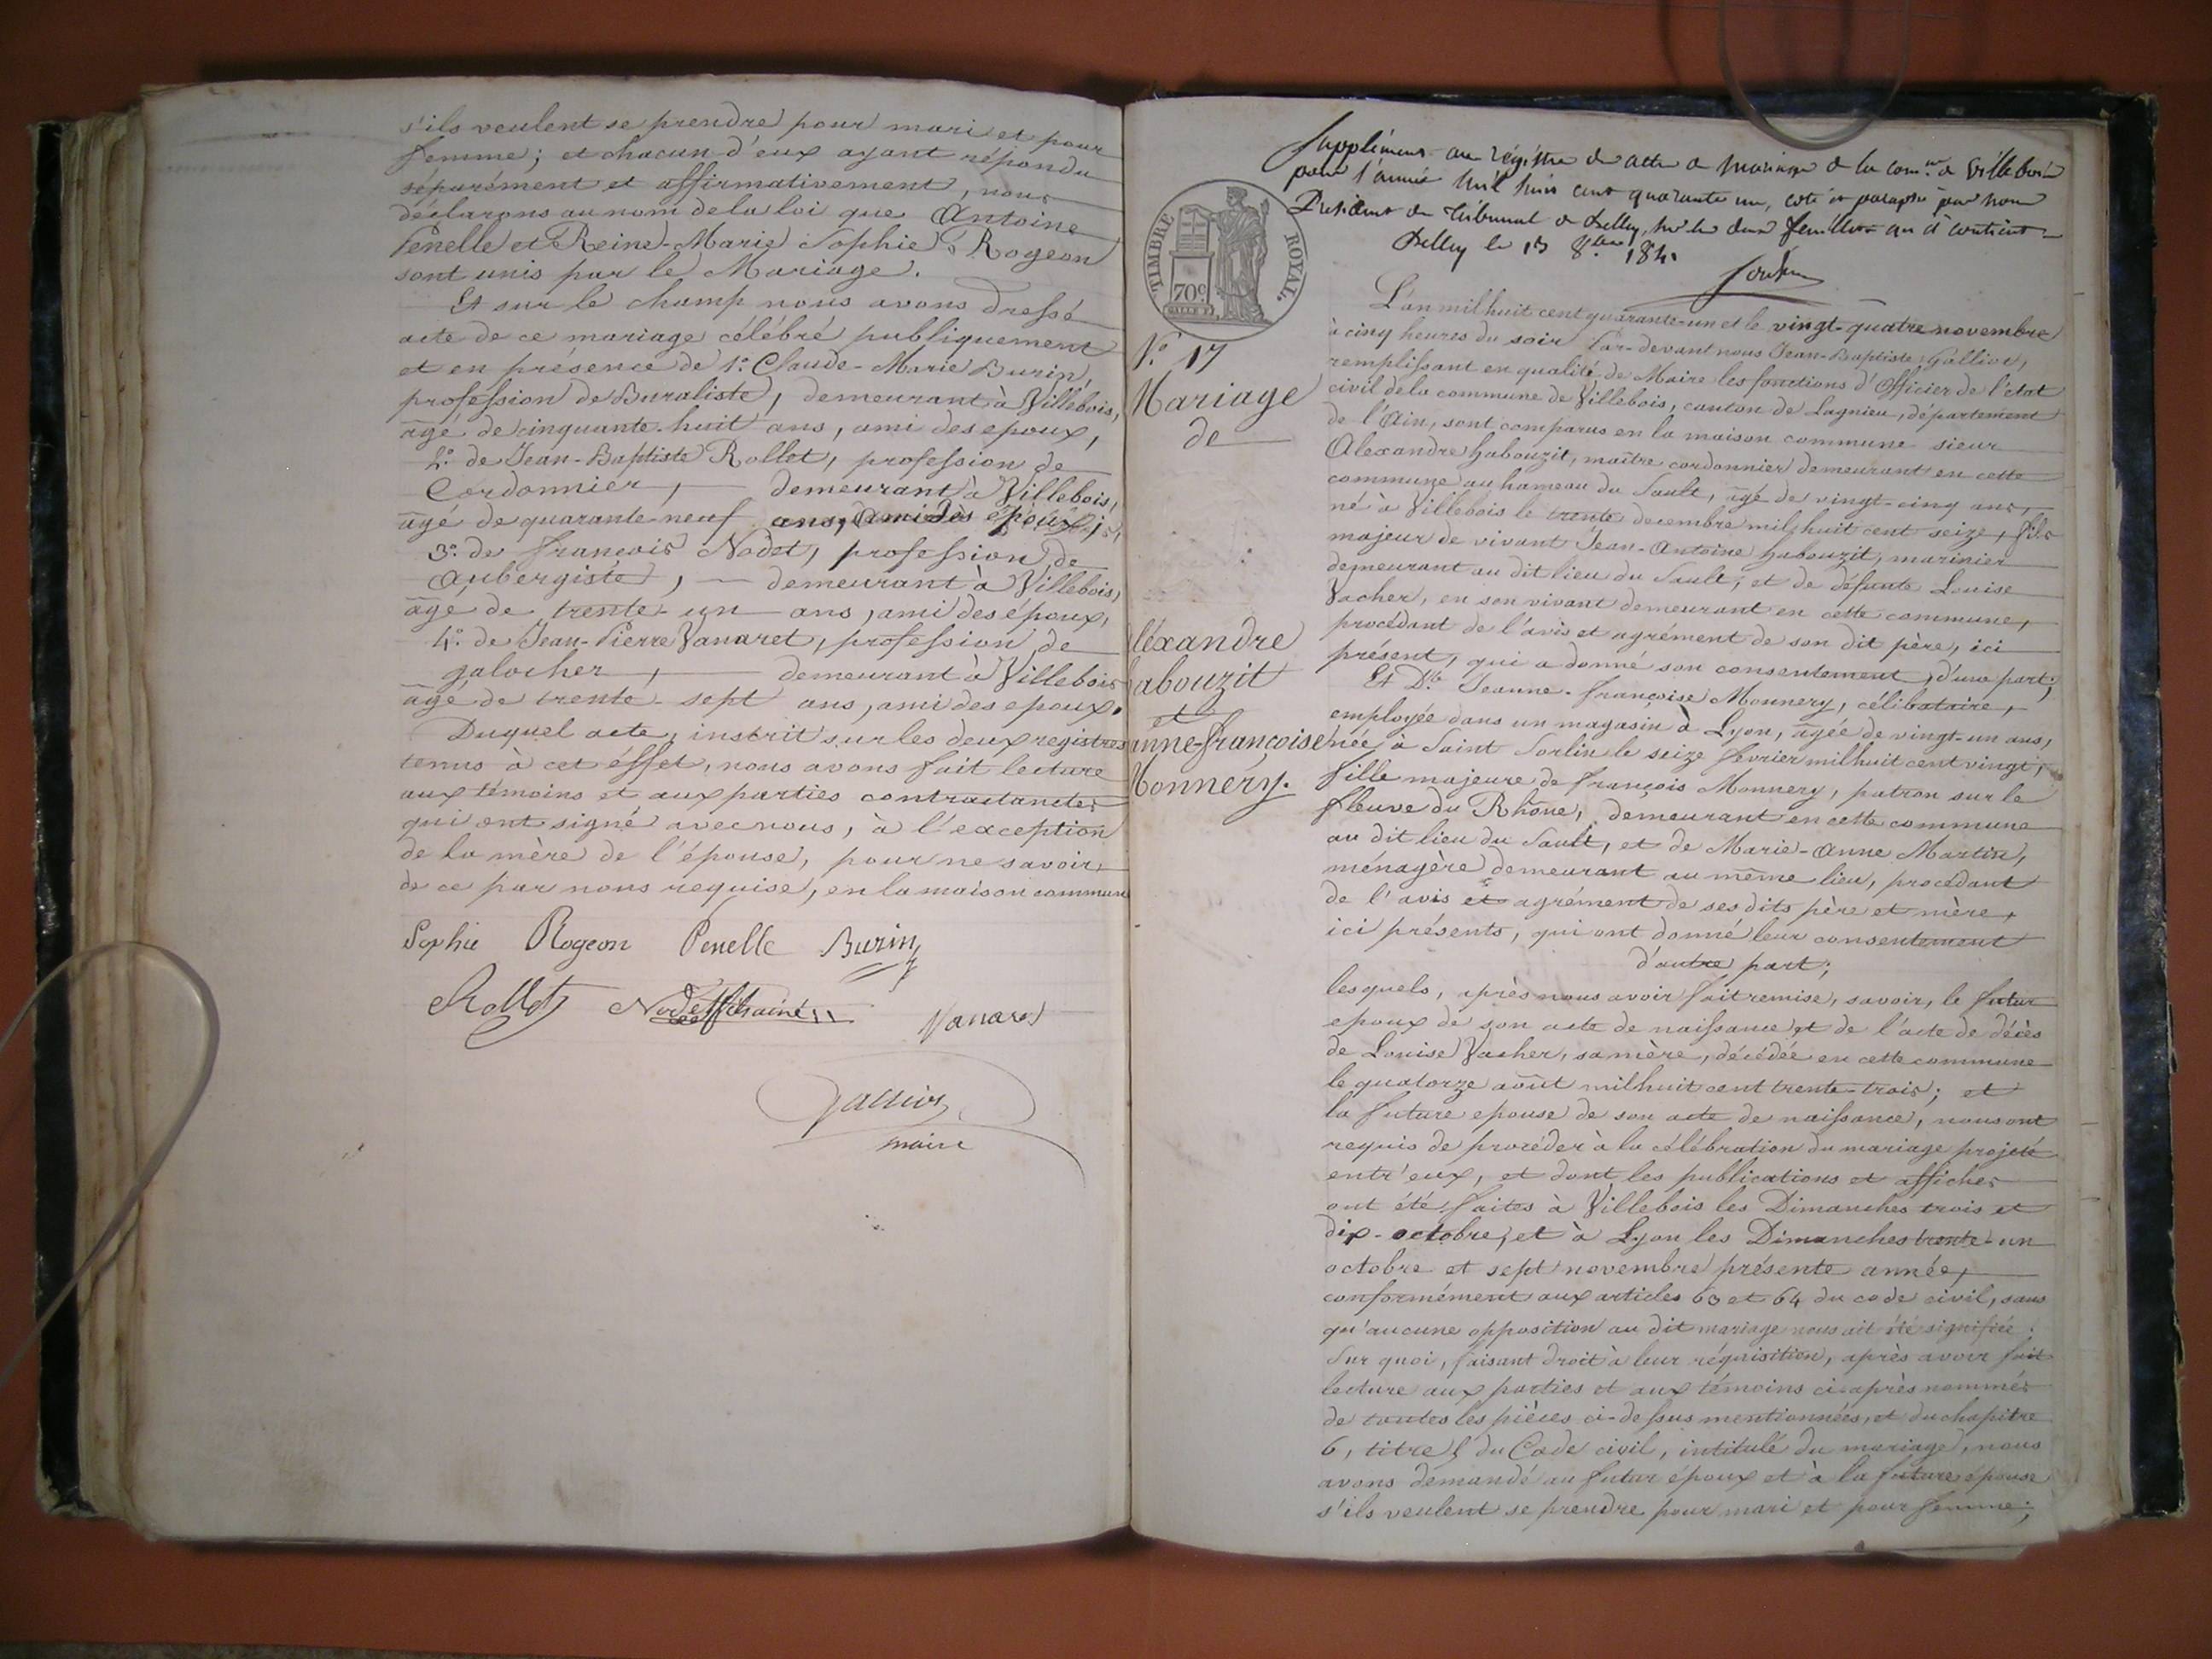 s'ils veulent se prendre pour mari et pour
femme; et chacun d'eux ayant répondu
séparément et affirmativement, nous
déclarons au nom de la loi que Antoine
Penelle et Reine-Marie Sophie Rogeon
sont unis par le Mariage.
Et sur le champ nous avons dressé
acte de ce mariage célébré publiquement
et en présence de 1º Claude-Marie Burin,
profession de Buraliste, demeurant à Villebois,
âgé de cinquante-huit ans, ami des epoux,
2º de Jean-Baptiste Rollet, profession de
Cordonnier, demeurant à Villebois,
âgé de quarante-neuf ans, ami des époux,
3º de françois Nodet, profession de
Aubergiste, demeurant à Villebois,
âgé de trente-un ans, ami des époux,
4º de Jean-Pierre Vanaret, profession de
galocher, demeurant à Villebois
âgé de trente-sept ans, ami des epoux.
Duquel acte, inscrit sur les deux registres
tenus à cet éffet, nous avons fait lecture
aux témoins et aux parties contractantes
qui ont signé avec nous, à l'exception
de la mère de l'épouse, pour ne savoir,
de ce par nous requise, en la maison commune
Sophie Rogeon Penelle Burin
Rollet Nodet fils ainé Vanaret
Galliot
maire
Supplément au régistre de actes de mariage de la comne de Villebois
pour l'année mil huit cent quarante un, coté et paraphé par nous
Président du Tribunal de Belley, sur les deux feuillets qu'il contient
Belley le 13 8bre 1841
TIMBRE ROYAL.
70c.
Nº 17
Mariage
de
léxandre
abouzit
et
anne-françoise
Monnery.
L'an mil huit cent quarante-un et le vingt-quatre novembre
à cinq heures du soir Par-devant nous Jean-Baptiste Galliot,
remplissant en qualité de Maire les fonctions d'Officier de l'état
civil de la commune de Villebois, canton de Lagnieu, département
de l'Ain, sont comparus en la maison commune sieur
Alexandre Habouzit, maître cordonnier demeurant en cette
commune au hameau du Sault, âgé de vingt-cinq ans,
né à Villebois le trente decembre mil huit cent seize, fils
majeur de vivant Jean-Antoine Habouzit, marinier
demeurant au dit lieu du Sault, et de défunte Louise
Vacher, en son vivant demeurant en cette commune,
procédant de l'avis et agrément de son dit père, ici
présent, qui a donné son consentement, d'une part;
Et Dlle Jeanne-françoise Monnery, célibataire,
employée dans un magasin à Lyon, agée de vingt-un ans,
née à Saint Sorlin le seize fevrier mil huit cent vingt,
fille majeure de françois Monnery, patron sur le
fleuve du Rhône, demeurant en cette commune
au dit lieu du Sault, et de Marie-Anne Martin,
ménagère demeurant au même lieu, procédant
de l'avis et agrément de ses dits père et mère,
ici présents, qui ont donné leur consentement
d'autre part;
lesquels, après nous avoir fait remise, savoir, le futur
epoux de son acte de naissance et de l'acte de décès
de Louise Vacher, sa mère, décédée en cette commune
le quatorze août mil huit cent trente-trois; et
la future epouse de son acte de naissance, nous ont
requis de procéder à la célébration du mariage projeté
entr'eux, et dont les publications et affiches
ont été faites à Villebois les Dimanches trois et
dix-octobre, et à Lyon les Dimanches trente-un
octobre et sept novembre présente année,
conformément aux articles 63 et 64 du code civil, sans
qu'aucune opposition au dit mariage nous ait été signifiée.
Sur quoi, faisant droit à leur réquisition, après avoir fait
lecture aux parties et aux témoins ci-après nommés
de toutes les pièces ci-dessus mentionnées, et du chapitre
6, titre 5 du Code civil, intitulé du mariage, nous
avons demandé au futur époux et à la future épouse
s'ils veulent se prendre pour mari et pour femme;